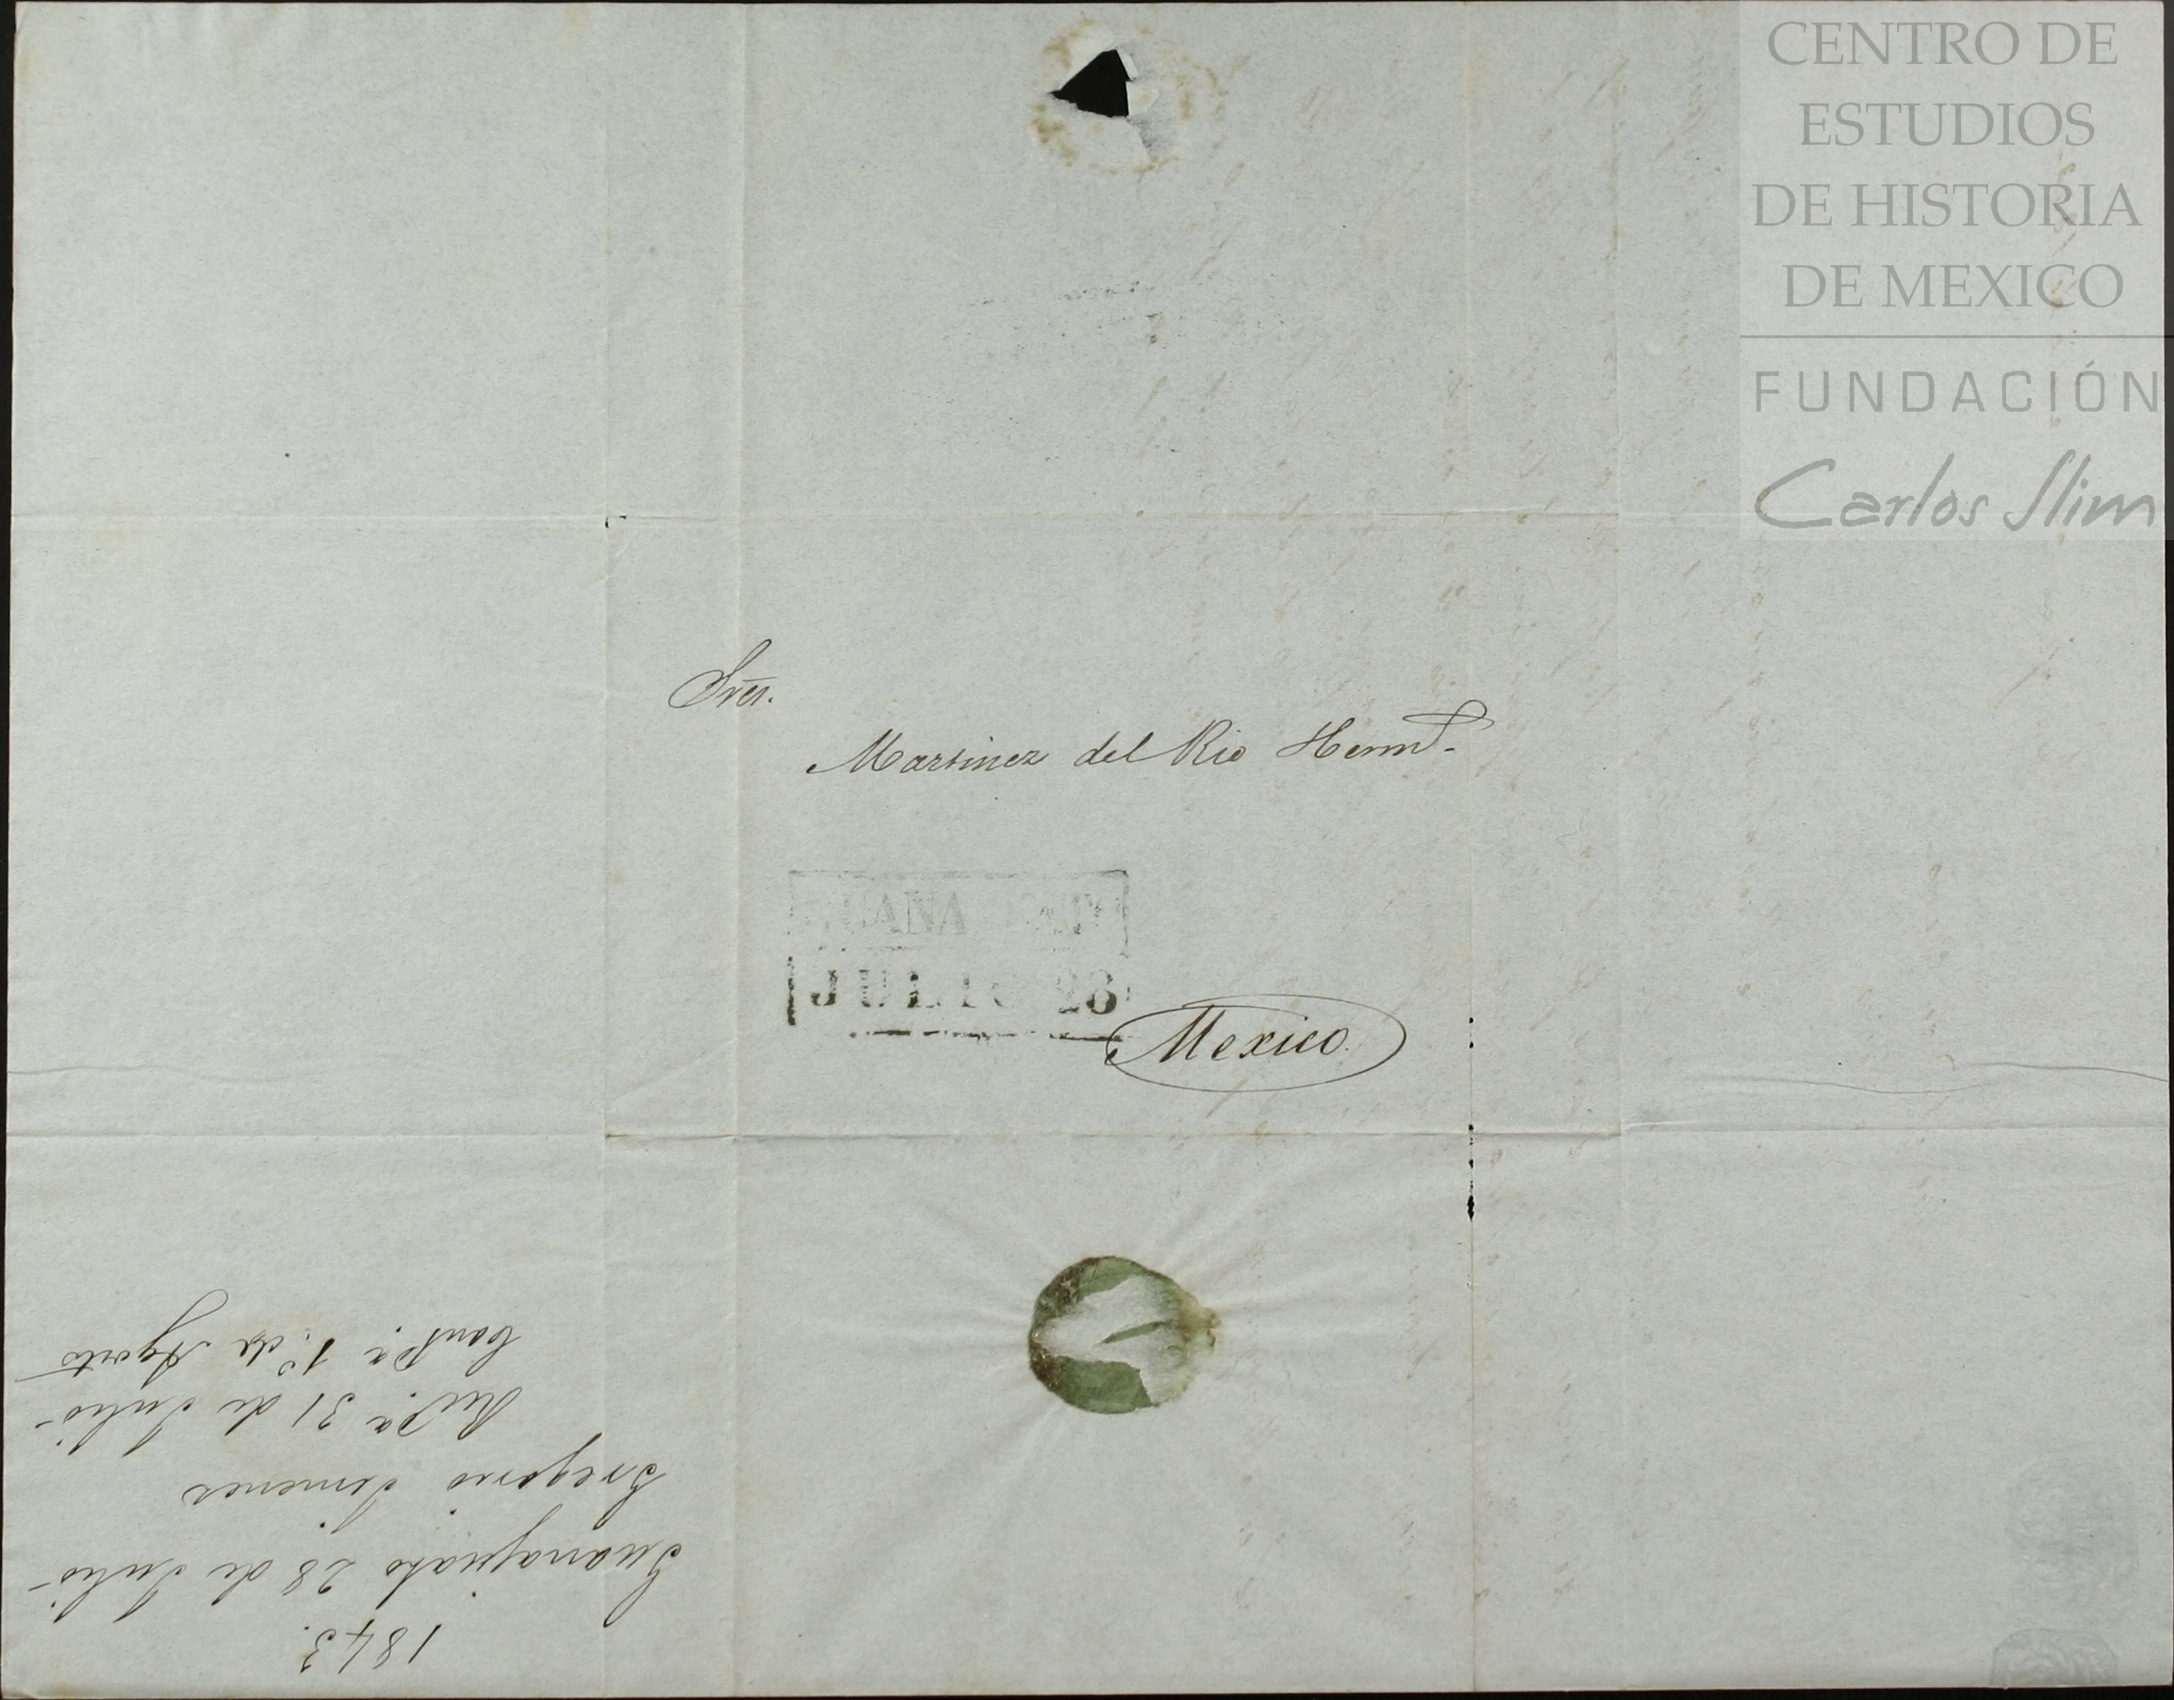 CENTRO DE
ESTUDIOS
DE HISTORIA
DE MEXICO
FUNDACIÓN
Carlos Slim
Sres.
Martinez del Rio Herms.
JULIO 28
Mexico.
1843.
Guanajuato 28 de Julio
Gregorio Jimenez
Recda. 31 de Julio
Contda. 1º. de Agosto